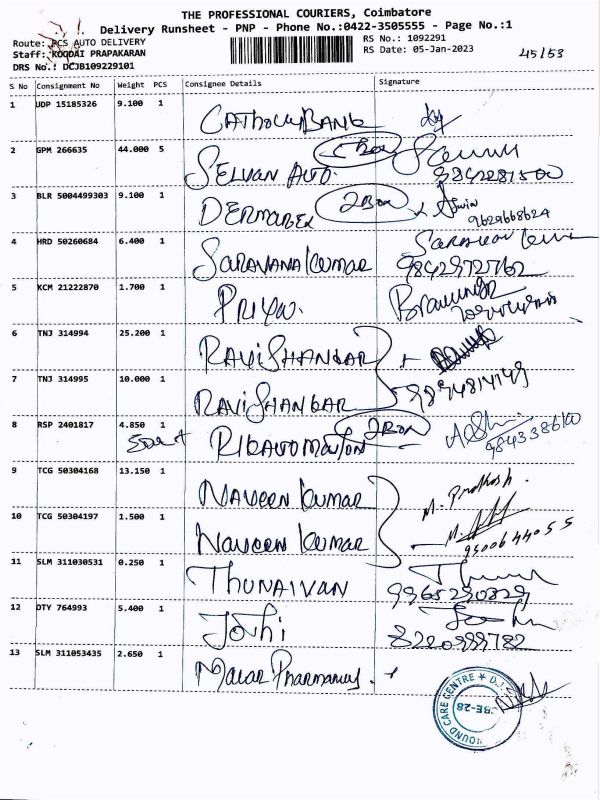 THE PROFESSIONAL COURIERS, Coimbatore
Delivery Runsheet - PNP - Phone No.:0422-3505555 - Page No.:1
Route: PCS AUTO DELIVERY
RS No.: 1092291
Staff: KODAI PRAPAKARAN
RS Date: 05-Jan-2023
45/53
DRS No.: DCJB109229101
S No Consignment No Weight PCS Consignee Details Signature
1 UDP 15185326 9.100 1
CATHOLIC BANK
2 GPM 266635 44.000 5
5 Box
SELVAN AUTO.
9842281500
3 BLR 5004499303 9.100 1
DERMABEX 2 Box
9629668624
4 HRD 50260684 6.400 1
SARAVANA KUMAR
9842972762
5 KCM 21222870 1.700 1
PRIYA.
6 TNJ 314994 25.200 1
RAVI SHANKAR
7 TNJ 314995 10.000 1
RAVI SHANKAR
9894814149
8 RSP 2401817 4.850 1
2 Box
9843386100
9 TCG 50304168 13.150 1
NAVEEN KUMAR
10 TCG 50304197 1.500 1
NAVEEN KUMAR
9500644055
11 SLM 311030531 0.250 1
THUNAIVAN
9965290829
12 OTY 764993 5.400 1
JOTHI
8220999782
13 SLM 311053435 2.650 1
Malar Pharmacy
OUND CARE CENTRE
CBE-28